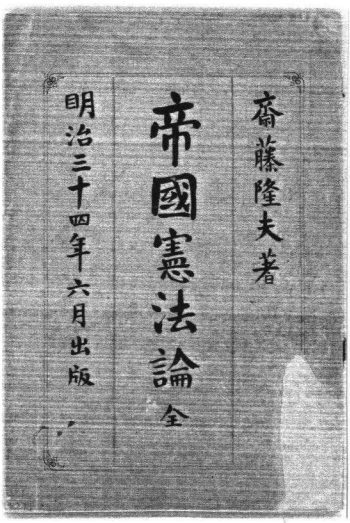 齋藤隆夫著
帝國憲法論全
明治三十四年六月出版